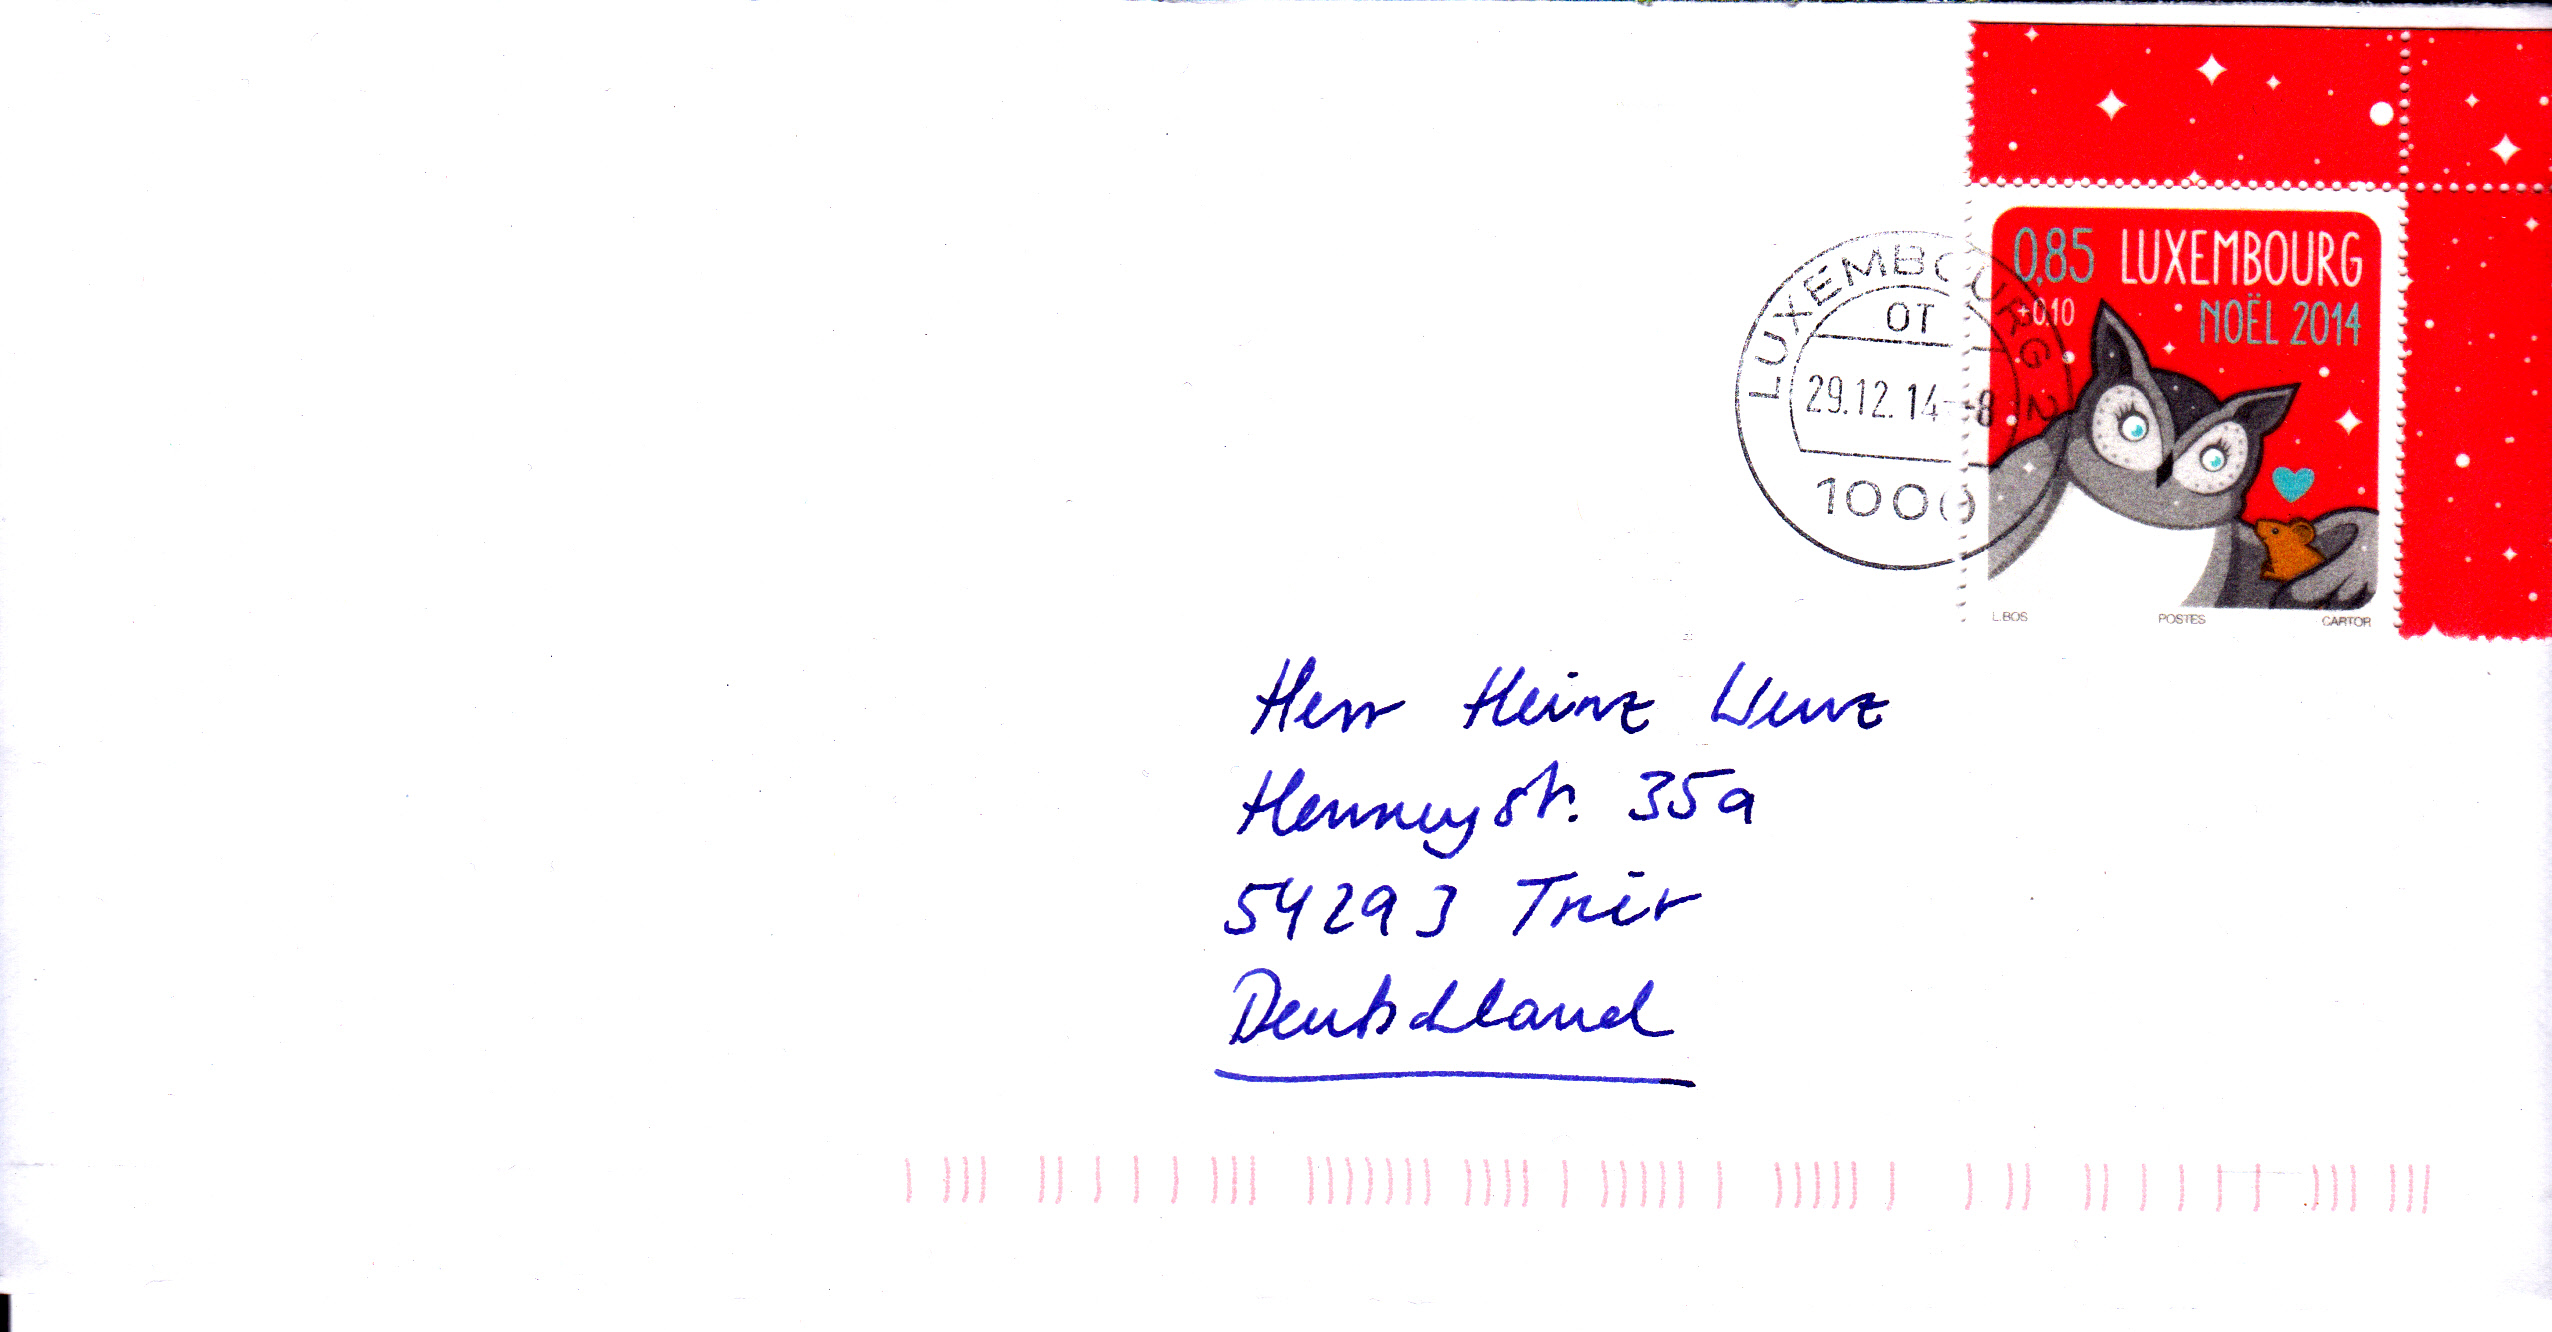 0,85 LUXEMBOURG
+0,10 NOËL 2014
LUXEMBOURG 2
OT
29.12.14-8
1000
L.BOS POSTES CARTOR
Herr Heinz Wenz
35a
54293 Trier
Deutschland